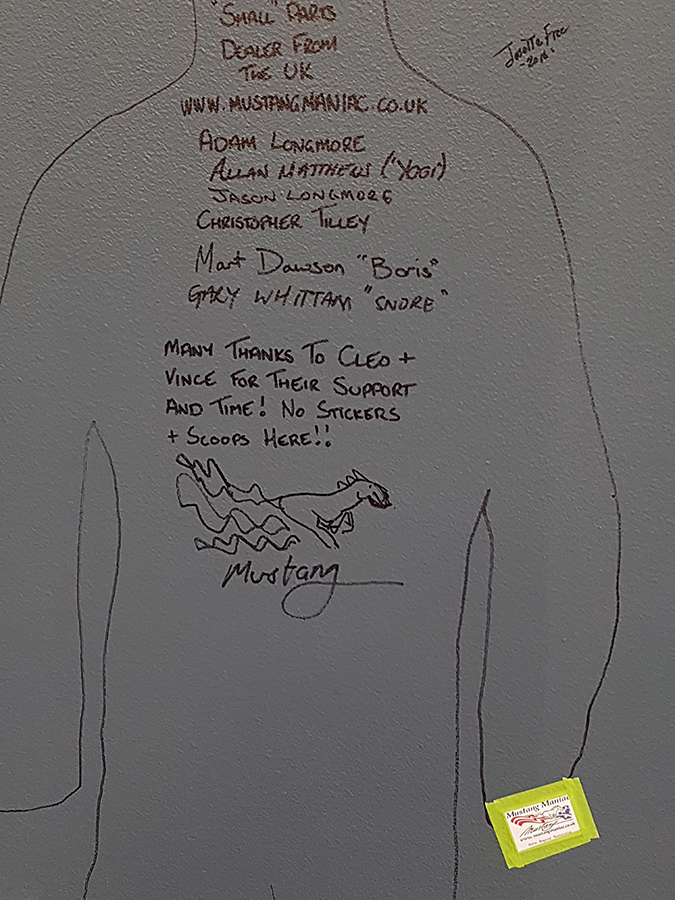 "SMALL" PARTS
DEALER FROM
THE UK
WWW.MUSTANGMANIAC.CO.UK
ADAM LONGMORE
ALLAN MATTHEWS ("YOGI")
JASON LONGMORE
CHRISTOPHER TILLEY
Mart Dawson "Boris"
GARY WHITTAM "SNORE"
MANY THANKS TO CLEO +
VINCE FOR THEIR SUPPORT
AND TIME! NO STICKERS
+ SCOOPS HERE!!
Mustang
Free
Mustang Maniac
Mustang
www.mustangmaniac.co.uk